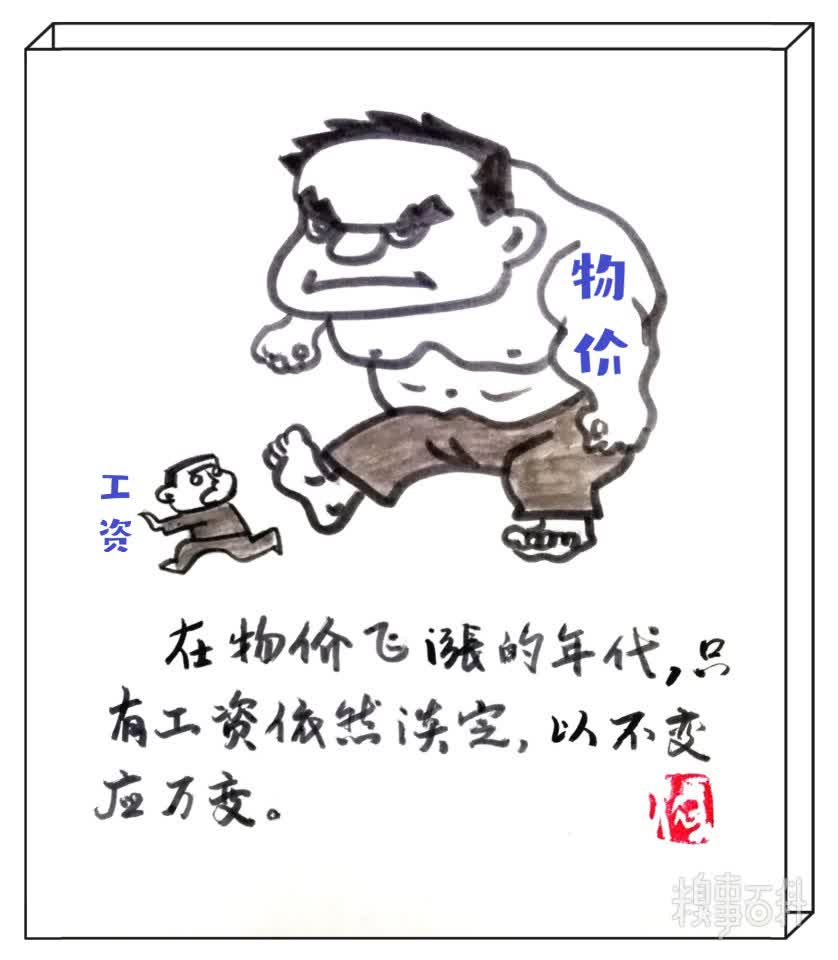 物
价
工
资
在物价飞漲的年代,只
有工资依然淡定,以不变
应万变。
糗事百科